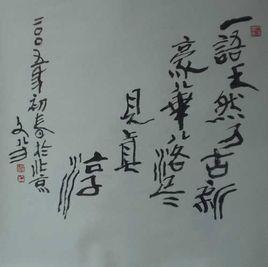 一語天然万古新
豪華落尽
見真
淳
二〇〇五年初春於北京